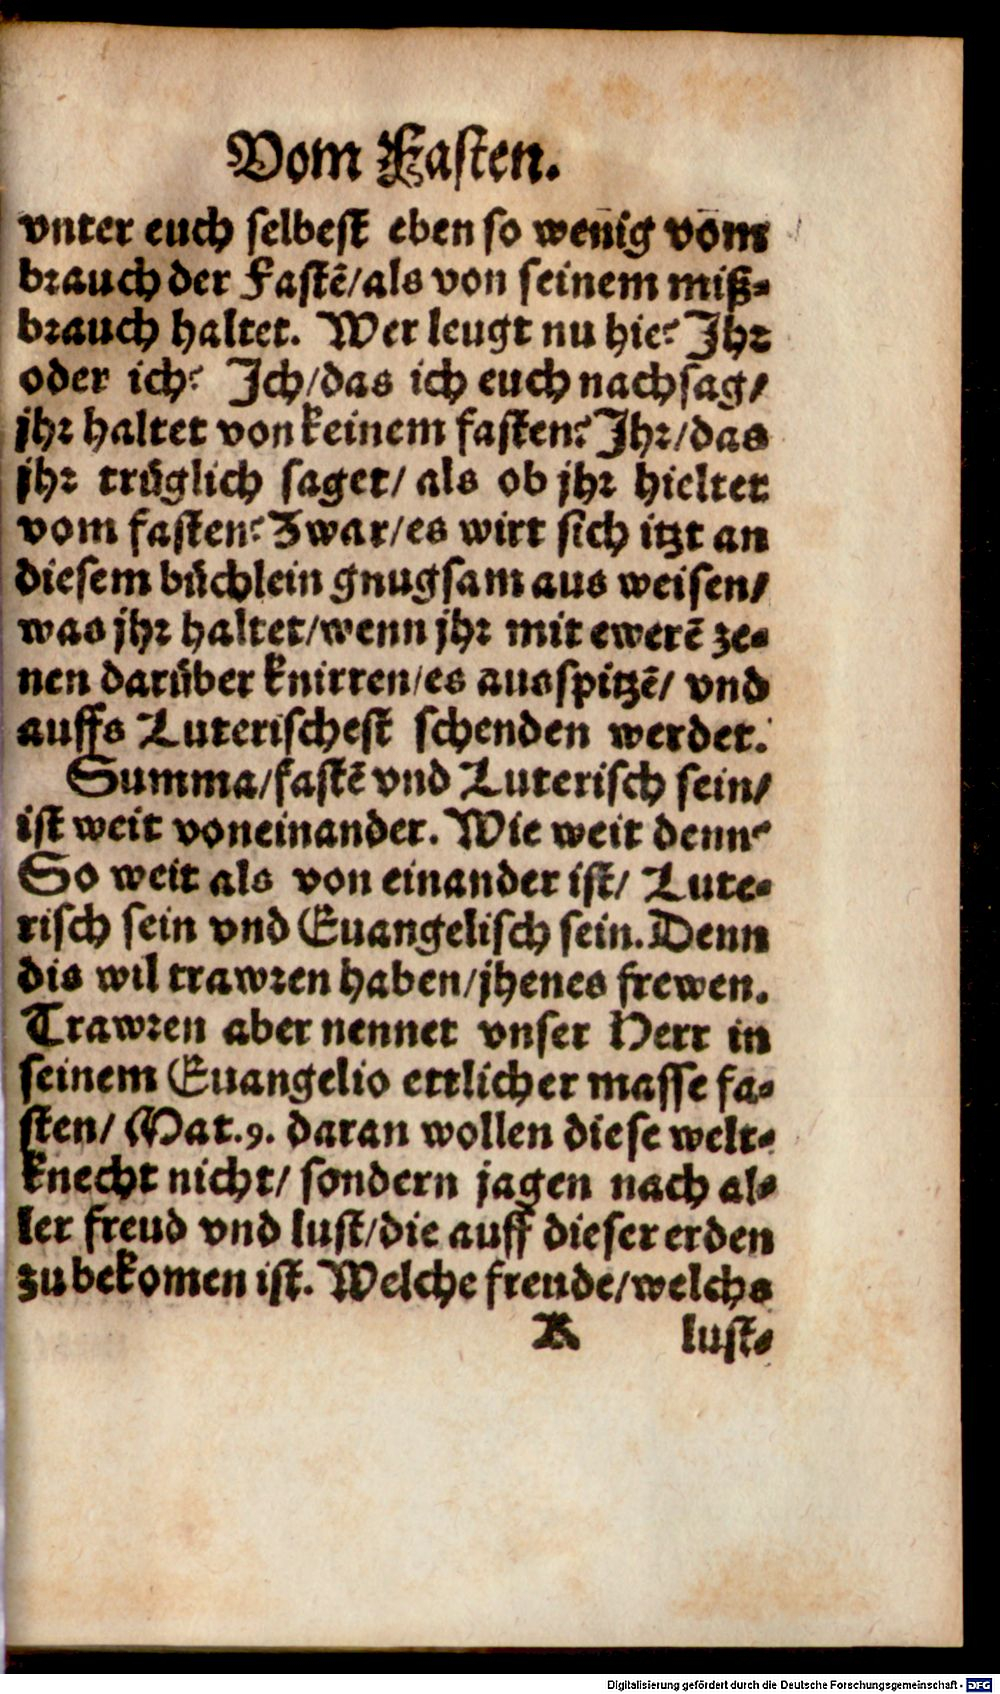 Vom Fasten.
vnter euch selbest eben so wenig vom
brauch der Fastē/als von seinem miß-
brauch haltet. Wer leugt nu hie? Jhr
oder ich? Jch/das ich euch nachsag/
jhr haltet von keinem fasten? Jhr/das
jhr trüglich saget/ als ob jhr hieltet
vom fasten? Zwar/es wirt sich itzt an
diesem büchlein gnugsam aus weisen/
was jhr haltet/wenn jhr mit ewerē ze-
nen darüber knirren/es ausspitzē/ vnd
auffs Luterischest schenden werdet.
Summa/fastē vnd Luterisch sein/
ist weit voneinander. Wie weit denn?
So weit als von einander ist/ Lute-
risch sein vnd Euangelisch sein. Denn
dis wil trawren haben/jhenes frewen.
Trawren aber nennet vnser Herr in
seinem Euangelio ettlicher masse fa-
sten/ Mat.9. daran wollen diese welt-
knecht nicht/ sondern jagen nach al-
ler freud vnd lust/die auff dieser erden
zu bekomen ist. Welche freude/welchs
K lust-
Digitalisierung gefördert durch die Deutsche Forschungsgemeinschaft - DFG